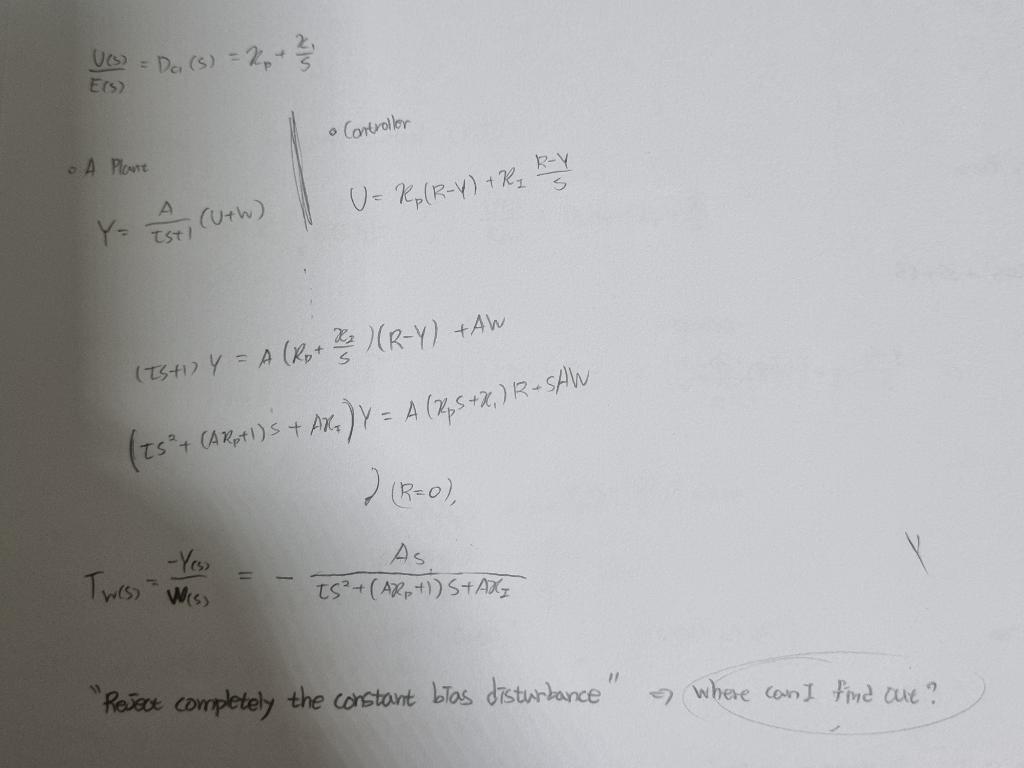 U(s)/E(s) = Dc₁(s) = 𝒦p + 𝒦₁/S
∘ Controller
∘ A Plant
U = 𝒦p(R-Y) + 𝒦I (R-Y)/S
Y = A/(τs+1) (U+W)
(τs+1) Y = A (𝒦p + 𝒦I/S)(R-Y) + AW
(τs² + (A𝒦p+1)s + A𝒦I) Y = A (𝒦ps + 𝒦₁) R + sAW
) (R=0),
Tw(s) = -Y(s)/W(s) = - As/(τs² + (A𝒦p+1)s + A𝒦I)
Y
"Reject completely the constant bias disturbance" ⇒ where can I find out?